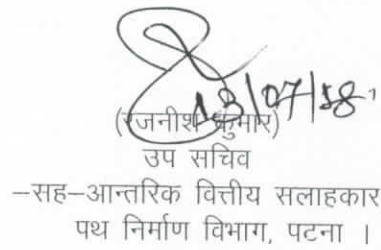 13/07/18
(रजनीश कुमार)
उप सचिव
–सह–आन्तरिक वित्तीय सलाहकार
पथ निर्माण विभाग, पटना ।